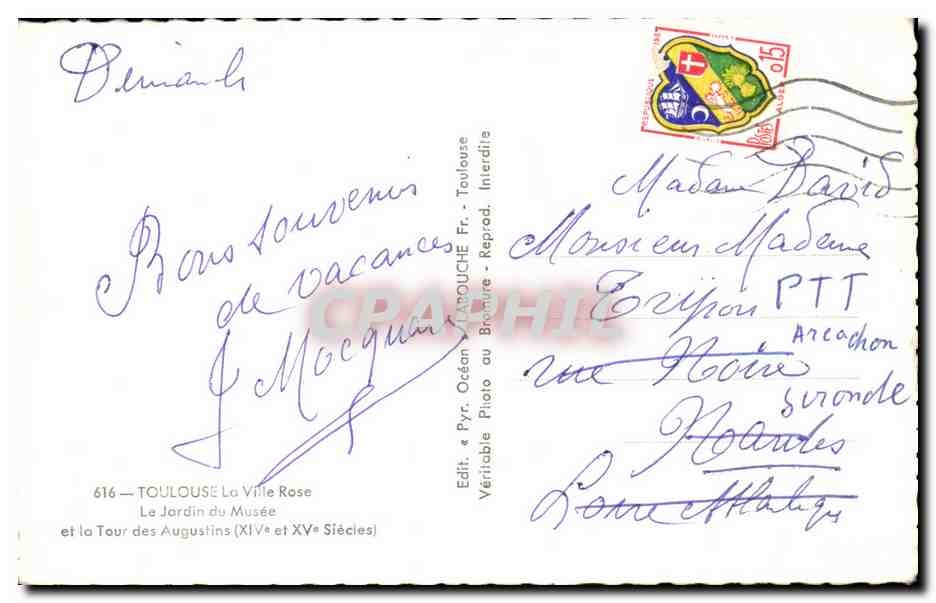 Bons souvenirs
de vacances
J Mocquard
616 — TOULOUSE La Ville Rose
Le Jardin du Musée
et la Tour des Augustins (XIVe et XVe Siècles)
Edit. « Pyr. Océan » LABOUCHE Fr. - Toulouse
Véritable Photo au Bromure - Reprod. Interdite
REPUBLIQUE
0,15
POSTES
ALGER
Madame David
Monsieur Madame
PTT
Arcachon
rue Noire
Gironde
Nantes
Loire Atlantique
CPAPHIL